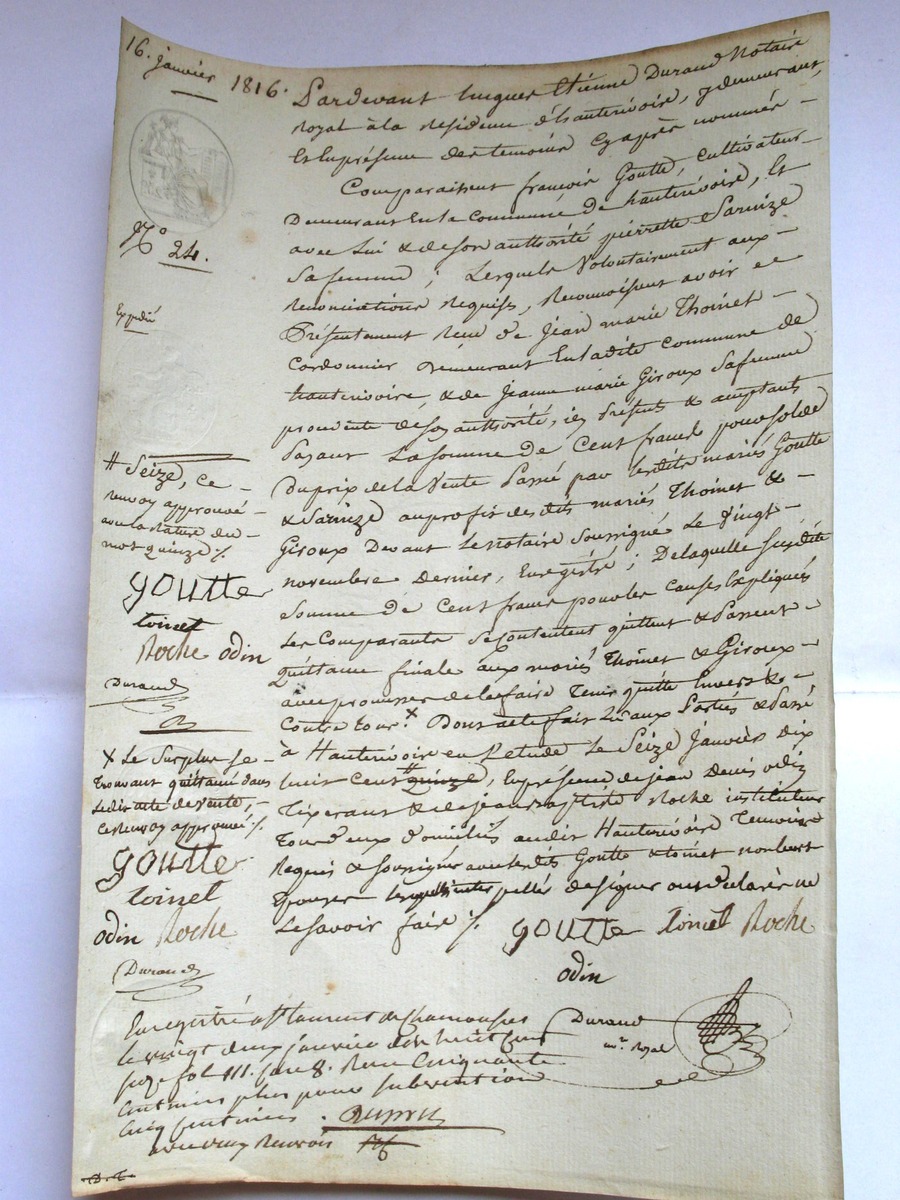 16. janvier 1816.
Pardevant hugues Etienne Durand Notaire
Royal à la Residence d'hauterivoire, y demeurant,
Et En présence des temoins cy après nommés
Comparaissent françois Goutte, cultivateur
Demeurant En la Commune de hauterivoire, Et
avec Lui & de son authorité pierrette Sarnize
Sa femme ; Lesquels Volontairement aux
Renonciations Requises, Reconnoissent avoir
Présentement Reçu de Jean marie Thoinet
Cordonnier Demeurant En la dite Commune de
hauterivoire, & de Jeanne marie Giroux Sa femme
de son authorité, ici Présents & acceptants
Payant La somme de Cent francs pour solde
Du prix de la Vente Passé par lesdits mariés Goutte
& Sarnize au profit des dits mariés Thoinet &
Giroux Devant Le Notaire Soussigné Le Vingt
novembre Dernier, Enregistré ; De laquelle susdite
Somme de Cent francs pour les causes Expliquées
Les Comparants Se Contentent quittent & Passent
Quittance finale aux mariés Thoinet & Giroux
avec promesse de les faire Tenir quitte Envers &
Contre tous.x Dont acte fait Lu aux Parties & Passé
à Hauterivoire en L'etude le Seize Janvier Dix
huit Cent # quinze, En présence de jean Denis odin
Tixerant & de jean baptiste Roche instituteur
Tous deux domiciliés audit Hauterivoire Temoins
Requis & Soussignés avec lesdits Goutte & toinet non leurs
Epouses de signer ont déclaré ne
Le Savoir faire ./.
goutte toinet Roche
odin
Durand
nre. Royal
No 24.
Expédié
# Seize, ce
renvoy approuvé
avec la rature du
mot quinze ./.
goutte
toinet
Roche odin
Durand
x Le Surplus se
trouvant quittancé dans
ledit acte de vente,
ce renvoy approuvé ./.
goutte
toinet
odin Roche
Durand
Enregistré à St Laurent de Chamousset
le vingt deux janvier dix huit cent
seize fol. 111. case 8. Reçu Cinquante
Centimes plus pour subvention
Cinq Centimes.
avec deux Renvois
D. T.